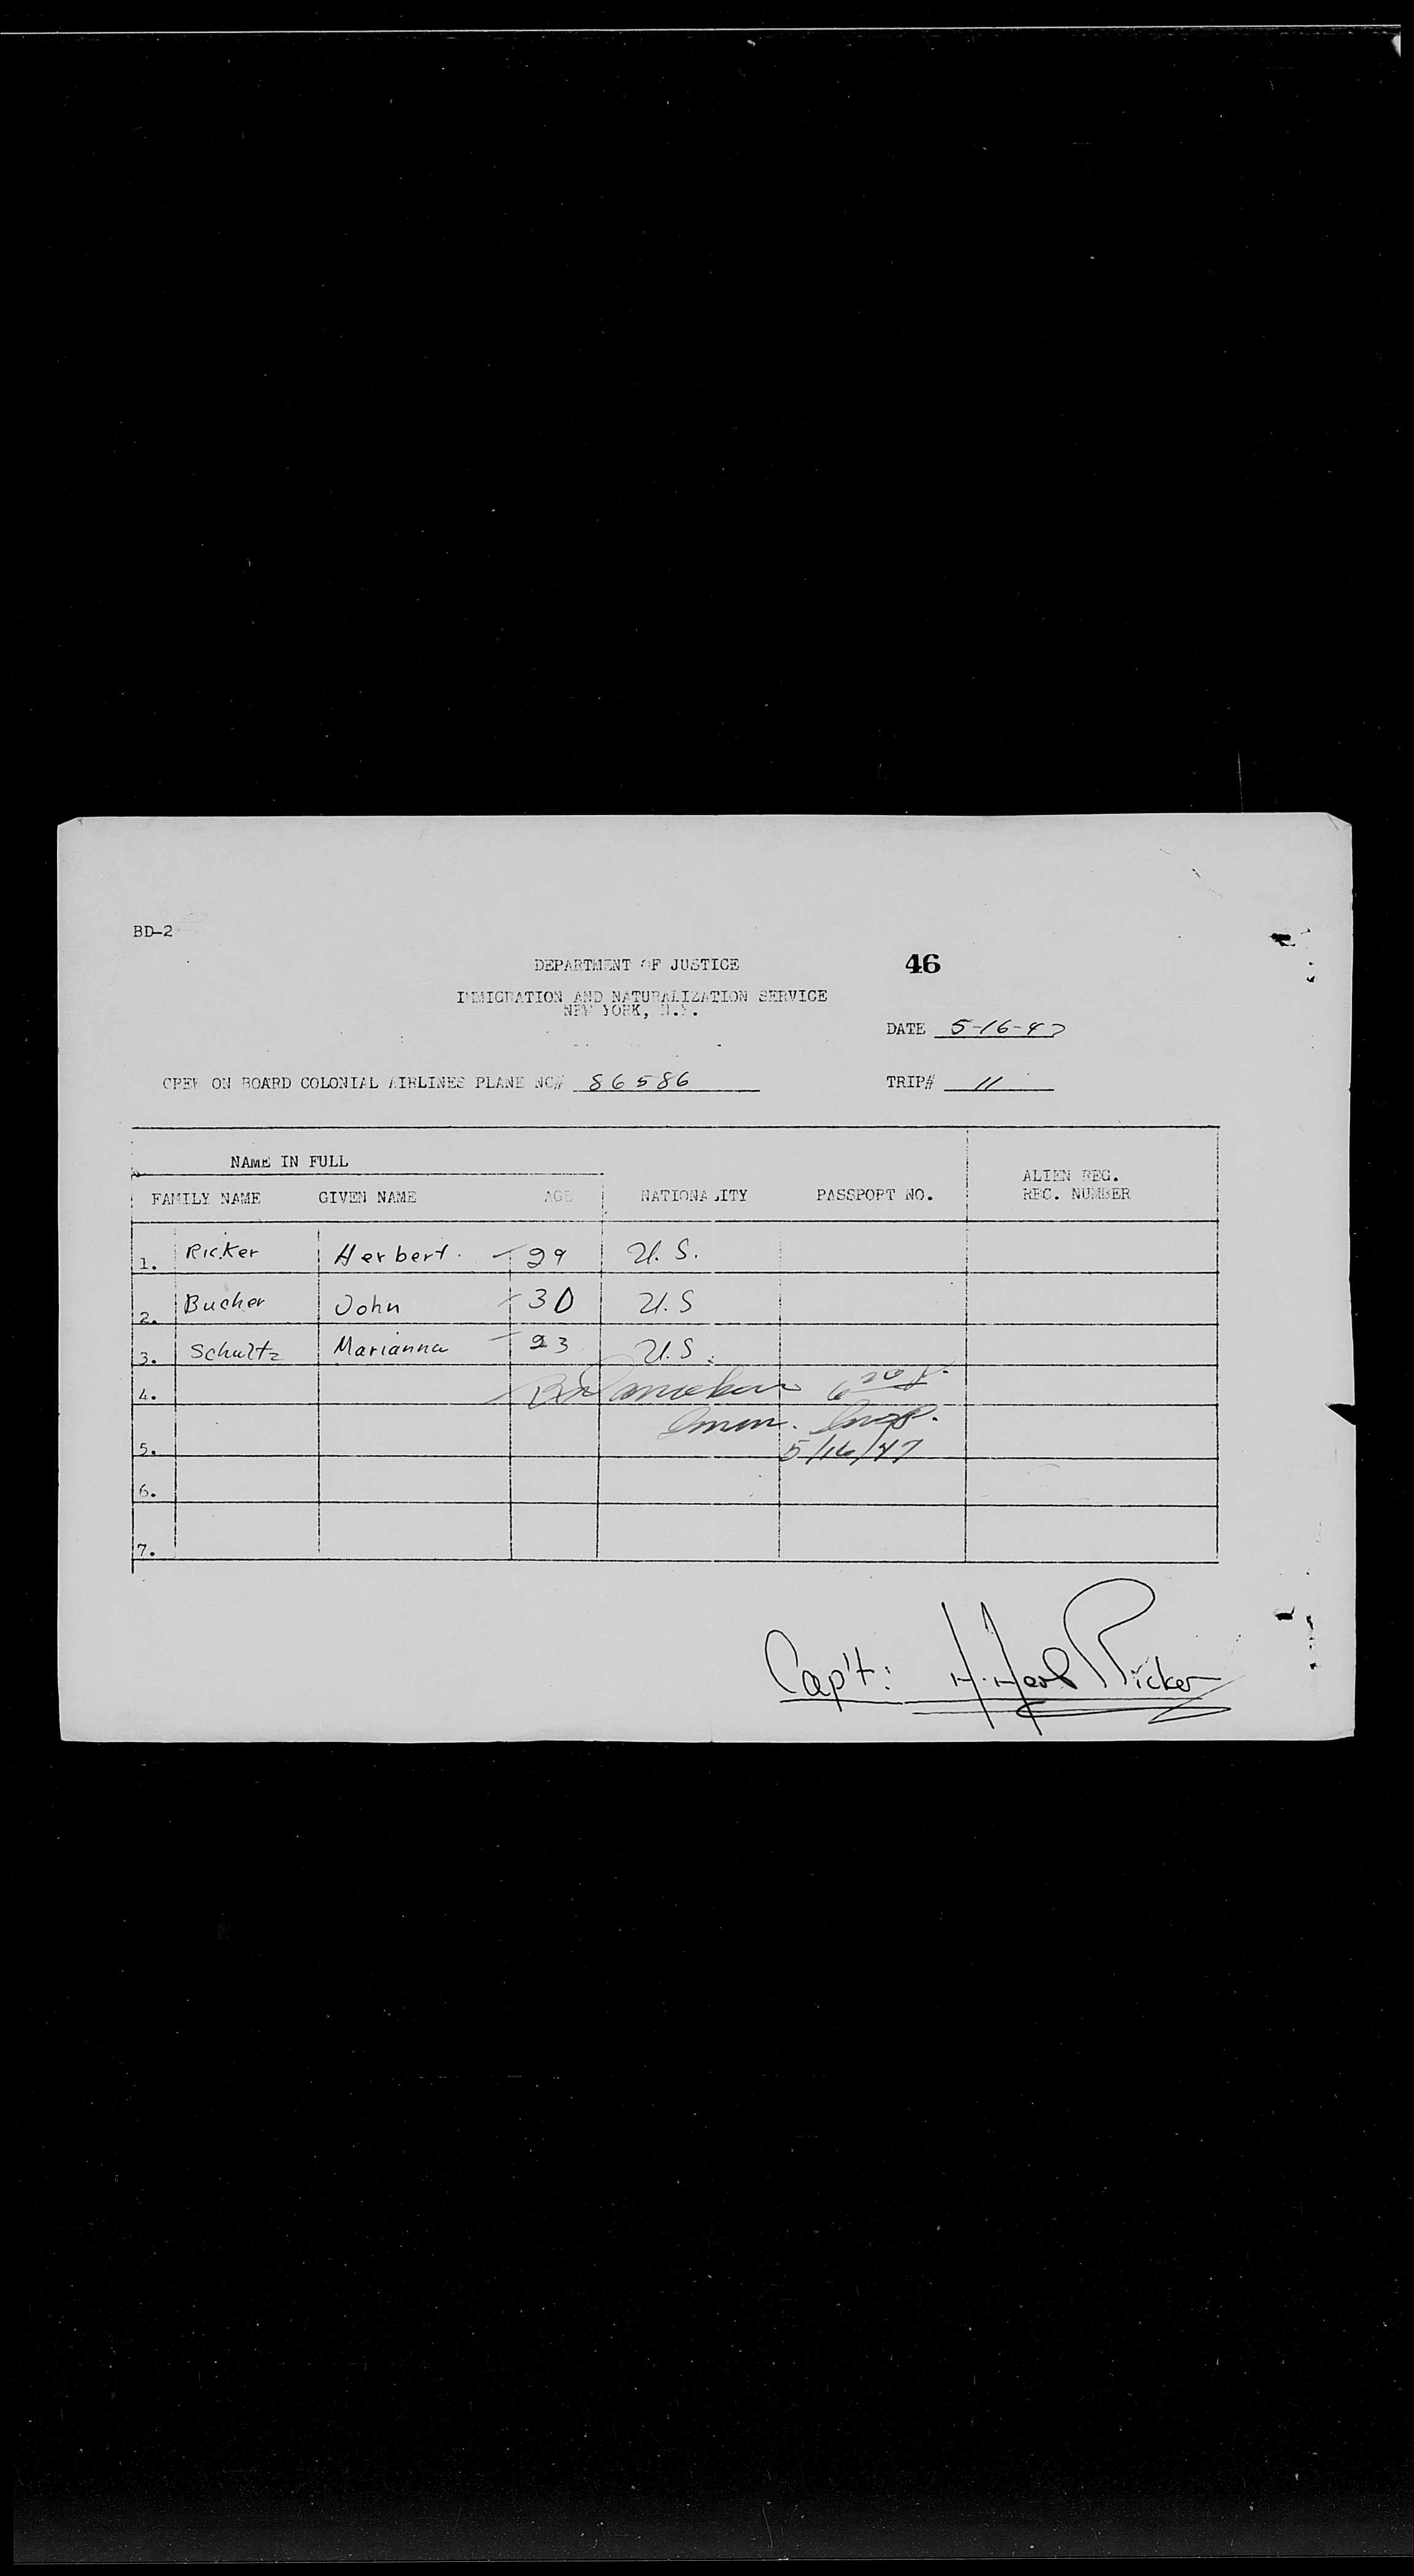 BD-2
DEPARTMENT OF JUSTICE
46
IMMIGRATION AND NATURALIZATION SERVICE
NEW YORK, N.Y.
DATE 5-16-47
CREW ON BOARD COLONIAL AIRLINES PLANE NC# 86586
TRIP# 11
NAME IN FULL
ALIEN REG.
FAMILY NAME GIVEN NAME AGE NATIONALITY PASSPORT NO. REC. NUMBER
1. Ricker Herbert. 29 U.S.
2. Bucher John 30 U.S
3. Schultz Marianna 23 U.S.
4.
Imm. Insp.
5. 5/16/47
6.
7.
Cap't: H. Herb Ricker